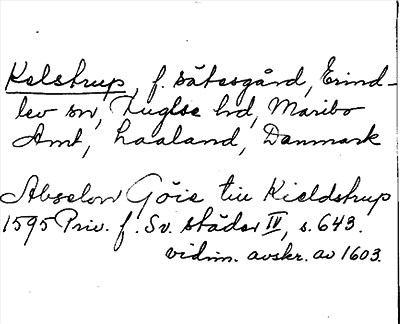 Kelstrup, f. sätesgård, Erind-
lev sn, Fuglse hd, Maribo
Amt, Laaland, Danmark
Abselon Göie till Kieldstrup
1595 Priv. f. Sv. städer IV, s. 643.
vidim. avskr. av 1603.